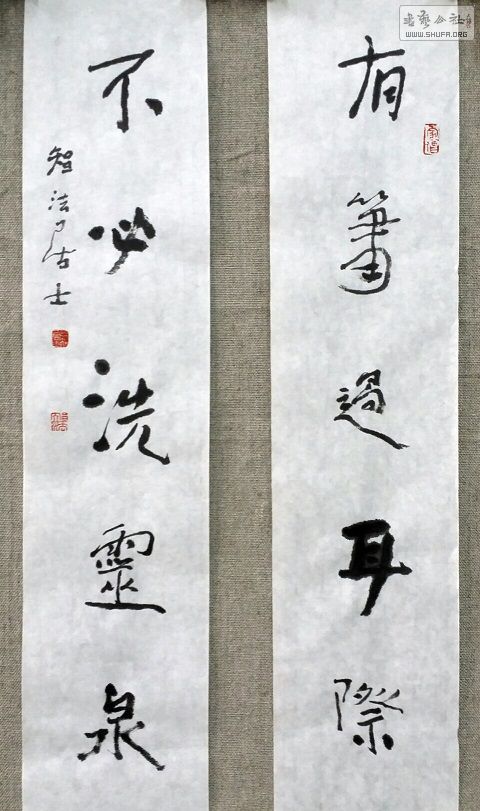 有箫過耳際
不必洗靈泉
智法居士
書法公社
WWW.SHUFA.ORG